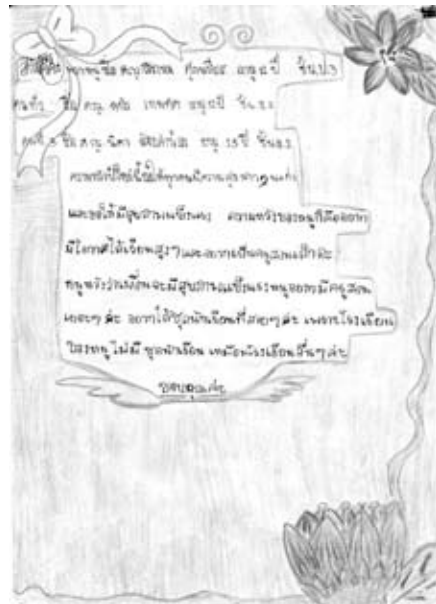 สวัสดีค่ะ พวกหนูชื่อ ด.ญ. อายุ ๙ ปี ชั้น.ป.3
คนที่2 ชื่อ ด.ญ. อายุ ปี ชั้น.
คนที่ 3 ชื่อ ด.ญ. นิดา อายุ 13 ปี ชั้น
ขอให้ทุกคนมีความสุขมากๆนะคะ
และขอให้มีสุขภาพแข็งแรง ความหวังของหนูก็คืออยาก
มีโอกาสได้เรียนสูงๆและอยากเป็นครูสอนเด็กค่ะ
หนูหวังว่าเพื่อนจะมีสุขภาพแข็งแรงหนูอยากมีครูสอน
เยอะๆ ค่ะ อยากได้ชุดนักเรียนที่สวยๆค่ะ เพราะโรงเรียน
ของหนูไม่มี ชุดนักเรียน เหมือนโรงเรียนอื่นๆค่ะ
ขอบคุณค่ะ